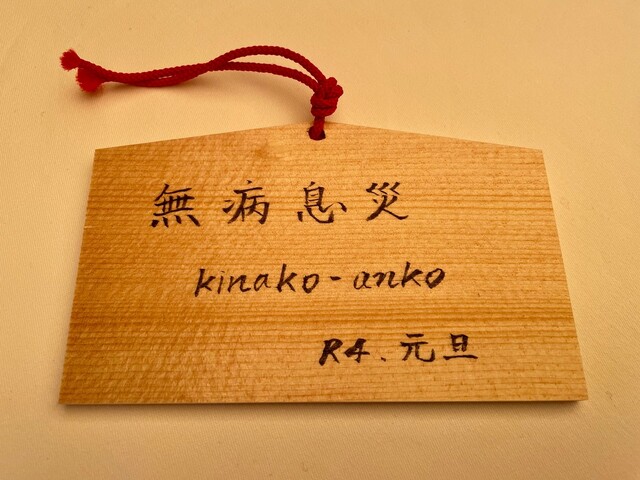 無病息災
kinako-anko
R4.元旦